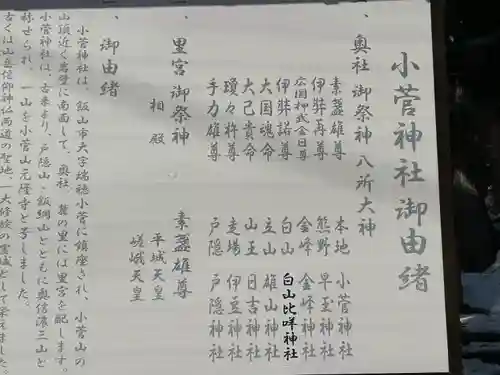 小菅神社御由緒
、奥社 御祭神 八所大神
素盞雄尊 本地 小菅神社
伊弉再尊 熊野 早至神社
広国押武金日尊 金峰 金峰神社
伊弉諾尊 白山 白山比咩神社
大国魂命 立山 雄山神社
大己貴命 山王 日吉神社
瓊々杵尊 走場 伊豆神社
手力雄尊 戸隠 戸隠神社
、里宮御祭神 素盞雄尊
相殿 平城天皇
嵯峨天皇
、御由緒
小菅神社は、飯山市大字瑞穂小菅に鎮座され、小菅山の
山頂近く岩壁に南面して、奥社、麓の里には里宮を配します。
小菅神社は、古来より、戸隠山・飯綱山とともに奥信濃三山と
称せられ、一山を小菅山元隆寺と号しました。
古くは山岳信仰神仏両道の聖地、一大修験の霊域として栄えました。